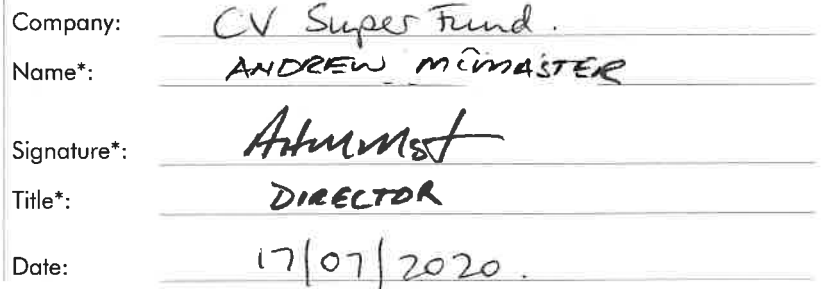 Company: CV Super Fund.
Name*: ANDREW McMASTER
Signature*:
Title*: DIRECTOR
Date: 17/07/2020.